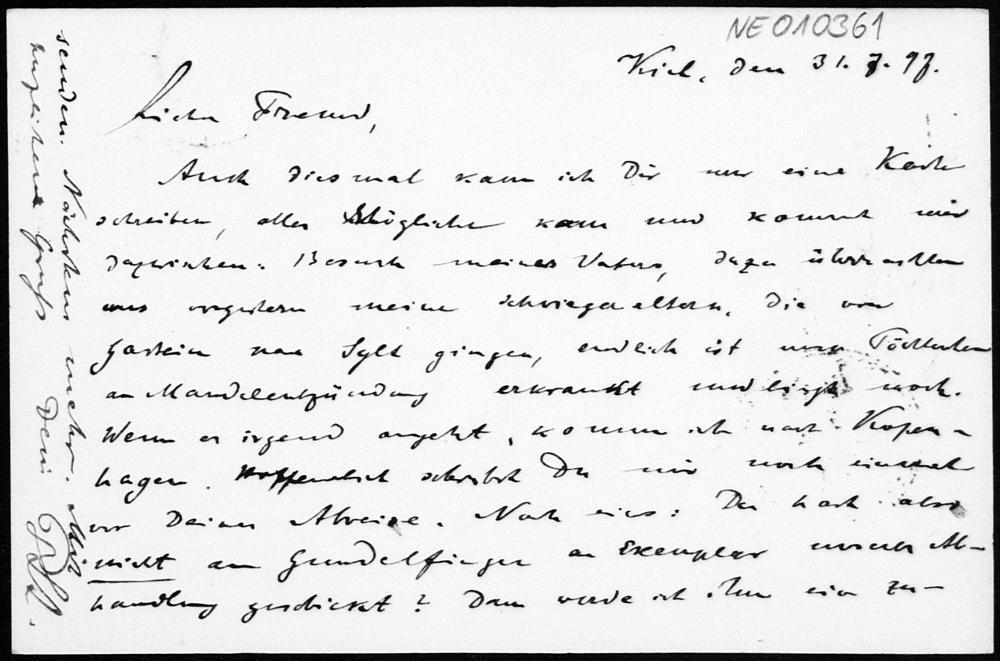 NE010361
Kiel, den 31. 7. 97.
Lieber Freund,
Auch diesmal kann ich Dir nur eine Karte
schreiben, alles Mögliche kam und kommt mir
dazwischen: Besuch meines Vaters, dazu überraschten
uns vorgestern meine Schwiegereltern, die von
Gastein nach Sylt gingen, endlich ist unser Töchterchen
an Mandelentzündung erkrankt und liegt noch.
Wenn es irgend angeht, komme ich nach Kopen-
hagen. Hoffentlich schreibst Du mir noch einmal
vor Deiner Abreise. Noch eins: Du hast also
nicht an Gundelfinger ein Exemplar unserer Ab-
handlung geschickt? Dann werde ich ihm ein zu-
senden. Nächstens mehr. Mit
herzlichem Gruß Dein